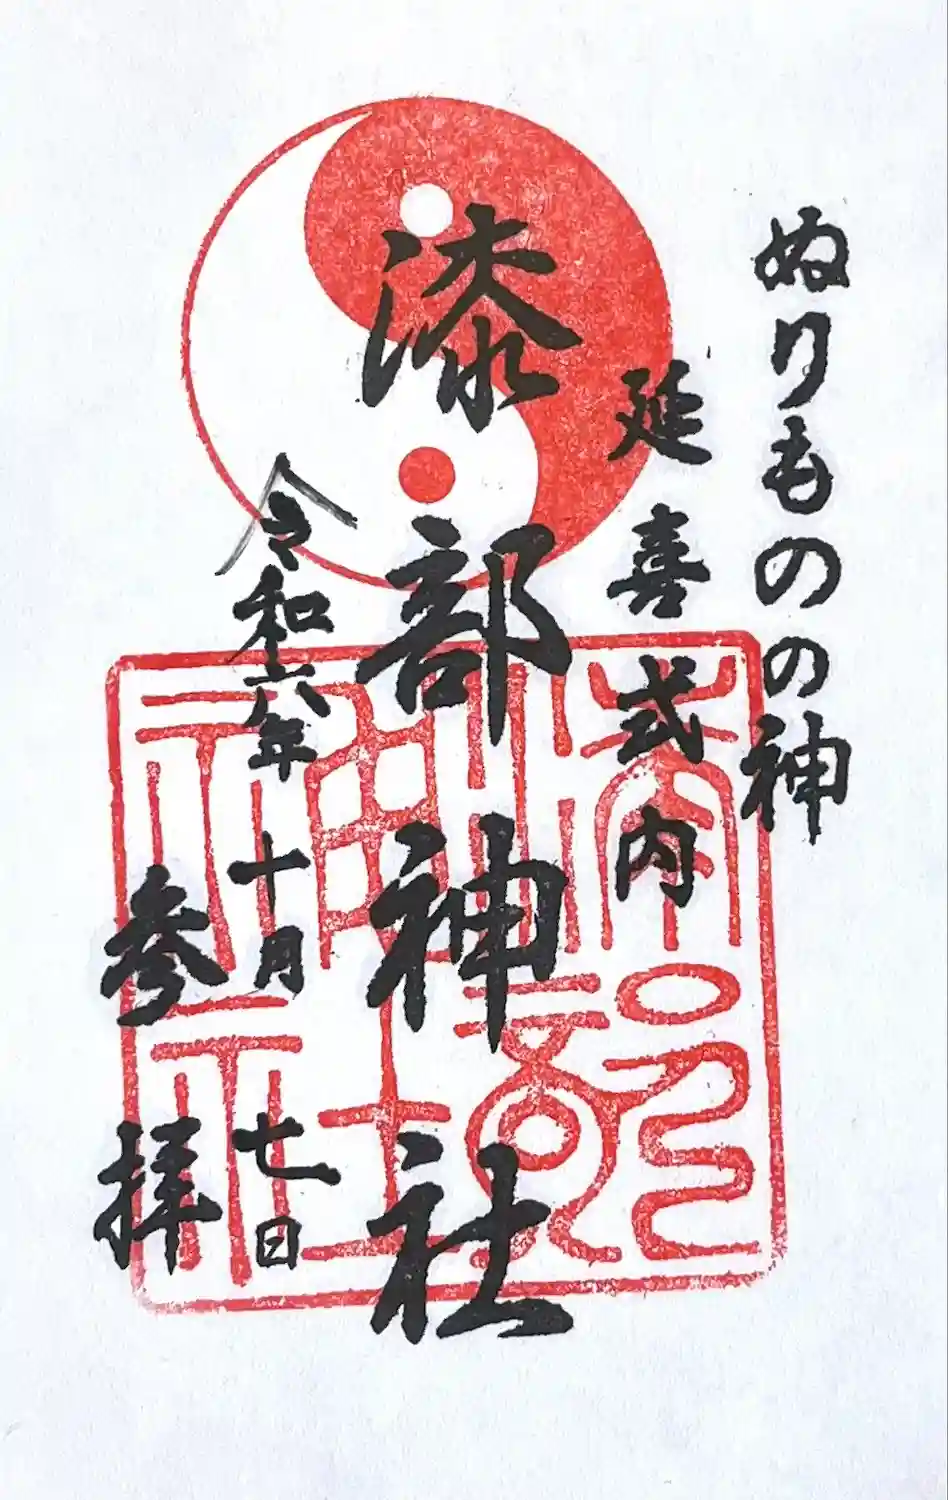 ぬりものの神
延喜式内
漆部神社
令和六年十月七日
参拝